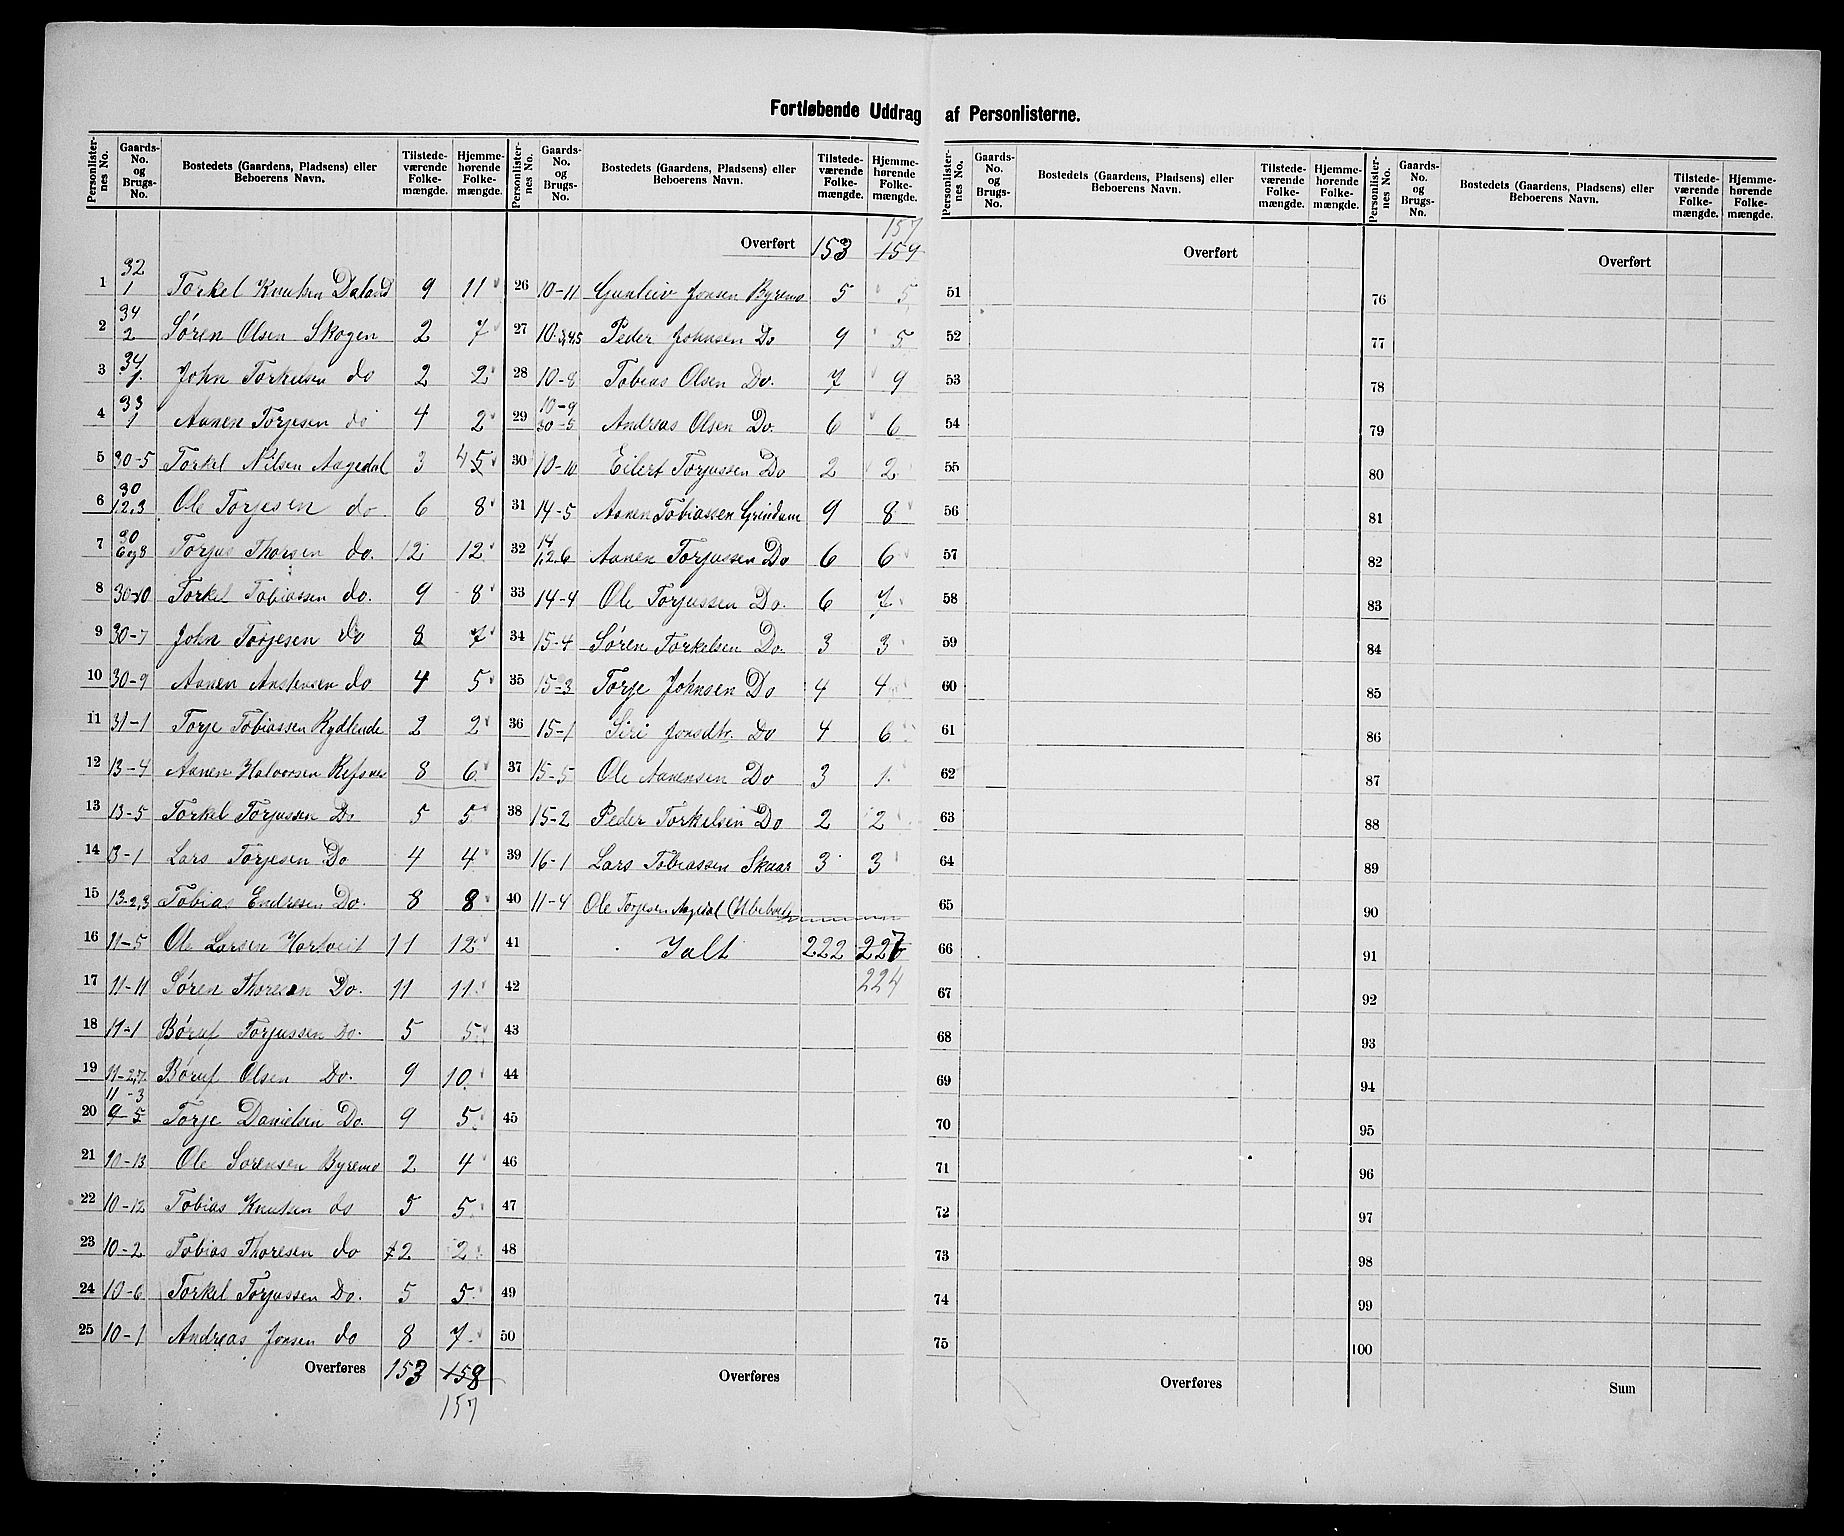 Fortløbende Uddrag af Personlisterne.
Personlister-nes No. Gaards-No. og Brugs-No. Bostedets (Gaardens, Pladsens) eller Beboerens Navn. Tilstede-værende Folke-mængde. Hjemme-hørende Folke-mængde.
1 32 1 Torkel Knutsen Daland 9 11
2 34 2 Søren Olsen Skogen 2 7
3 34 1 John Torkelsen do 2 2
4 33 1 Aanen Torjesen do 4 2
5 30-5 Torkel Nilsen Aagedal 3 4 5
6 30 1,2,3 Ole Torjesen do 6 8
7 30 6og8 Torjus Thorsen do. 12 12
8 30-10 Torkel Tobiassen do. 9 8
9 30-7 John Torjesen do 8 7
10 30-9 Aanen Anstensen do 4 5
11 31-1 Torje Tobiassen Rydlende 2 2
12 13-4 Aanen Halvorsen Refsnes 8 6
13 13-5 Torkel Torjussen Do 5 5
14 13-1 Lars Torjesen Do 4 4
15 13-2,3 Tobias Endresen Do. 8 8
16 11-5 Ole Larsen Hortveit 11 12
17 11-11 Søren Thoresen Do. 11 11
18 11-1 Børuf Torjussen Do. 5 5
19 11-2,7. Børuf Olsen Do. 9 10
20 11-3 9-5 Torje Danielsen Do. 9 5
21 10-13 Ole Sørensen Byremo 2 4
22 10-12 Tobias Knutsen do 5 5
23 10-2 Tobias Thoresen do 2 2
24 10-6 Torkel Torjussen Do. 5 5
25 10-1 Andreas Jonsen do 8 7
Overføres 153 158
157
Personlister-nes No. Gaards-No. og Brugs-No. Bostedets (Gaardens, Pladsens) eller Beboerens Navn. Tilstede-værende Folke-mængde. Hjemme-hørende Folke-mængde.
157
Overført 153 154
26 10-11 Gunleiv Jonsen Byremo 5 5
27 10-3,4,5 Peder Johnsen Do 9 5
28 10-8 Tobias Olsen Do. 7 9
29 10-9 30-5 Andreas Olsen Do. 6 6
30 10-10 Eilert Torjussen Do 2 2
31 14-5 Aanen Tobiassen Grindam 9 8
32 14 1,2,6 Aanen Torjussen Do 6 6
33 14-4 Ole Torjussen Do. 6 7
34 15-4 Søren Torkelsen Do. 3 3
35 15-3 Torje Johnsen Do 4 4
36 15-1 Siri Jonsdtr. Do 4 6
37 15-5 Ole Aanensen Do 3 1
38 15-2 Peder Torkelsen Do 2 2
39 16-1 Lars Tobiassen Skaar 3 3
40 11-4 Ole Torjesen Aagedal (Ubeboet)
41 Ialt 222 227
42 224
43
44
45
46
47
48
49
50
Overføres
Personlister-nes No. Gaards-No. og Brugs-No. Bostedets (Gaardens, Pladsens) eller Beboerens Navn. Tilstede-værende Folke-mængde. Hjemme-hørende Folke-mængde.
Overført
51
52
53
54
55
56
57
58
59
60
61
62
63
64
65
66
67
68
69
70
71
72
73
74
75
Overføres
Personlister-nes No. Gaards-No. og Brugs-No. Bostedets (Gaardens, Pladsens) eller Beboerens Navn. Tilstede-værende Folke-mængde. Hjemme-hørende Folke-mængde.
Overført
76
77
78
79
80
81
82
83
84
85
86
87
88
89
90
91
92
93
94
95
96
97
98
99
100
Sum